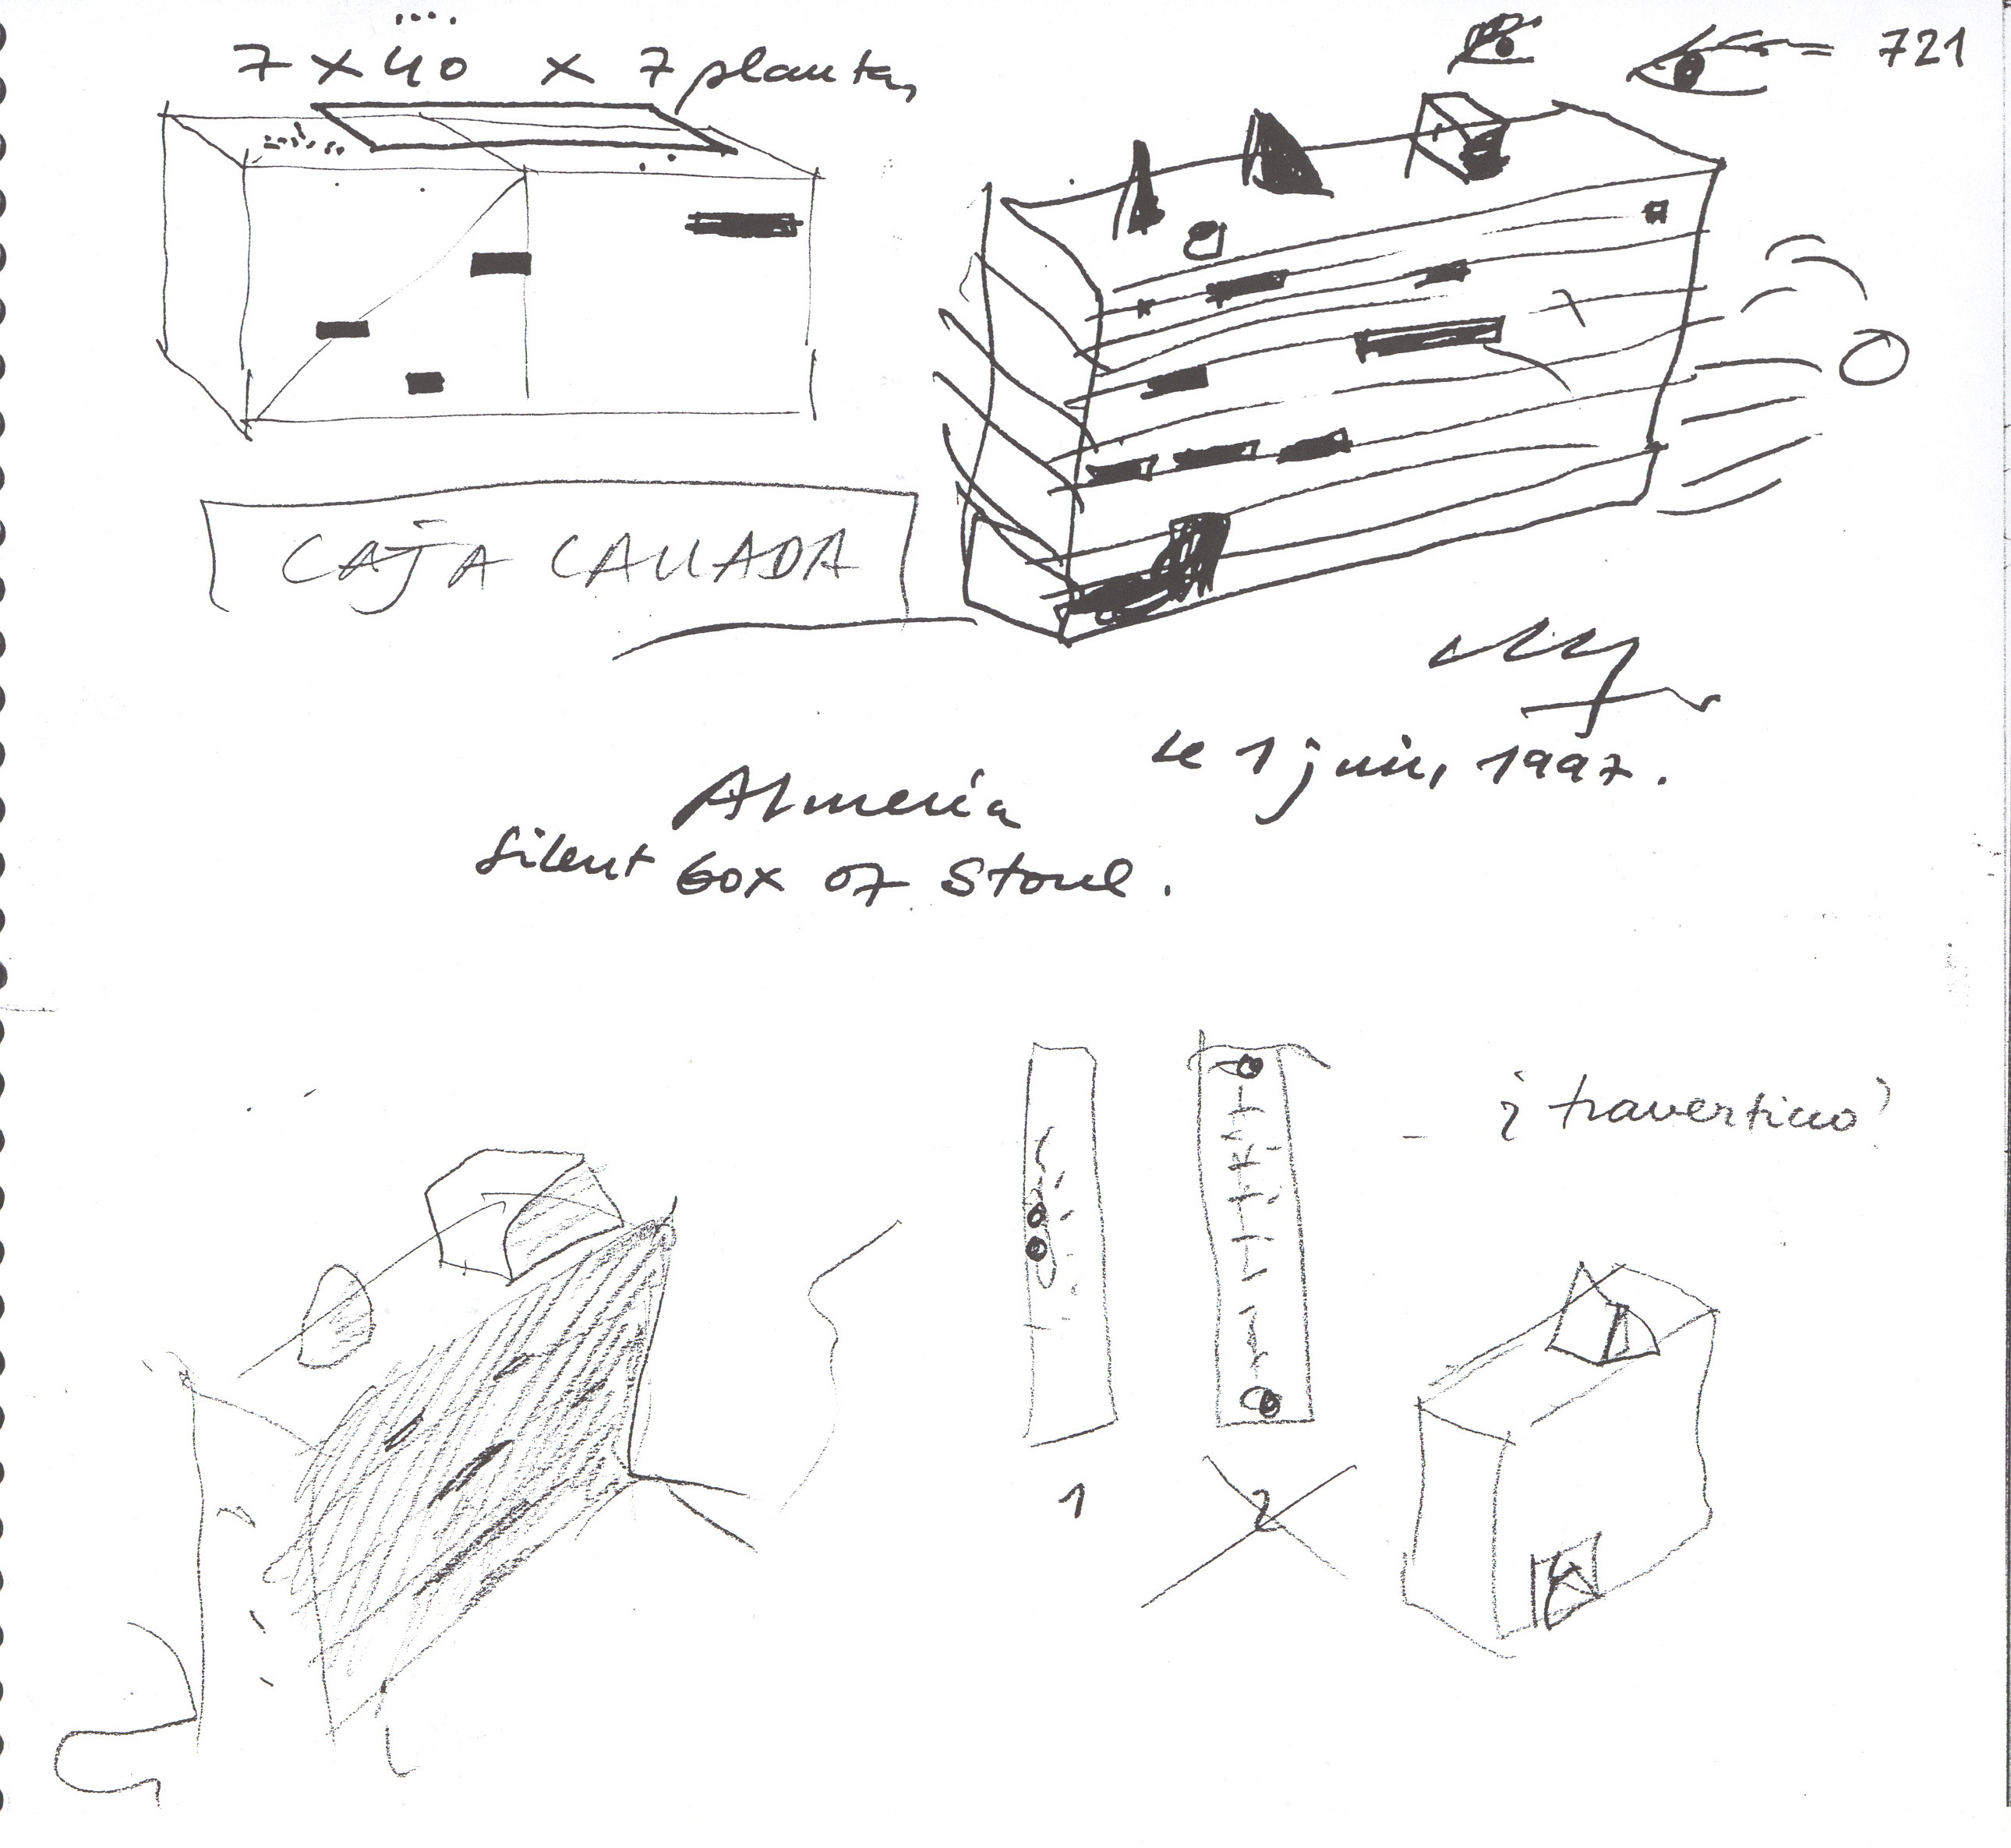 7 x 40 x 7 plantas
721
CAJA CALLADA
le 1 juin, 1997.
Almería
Silent box of Stone.
¿travertino?
1
2